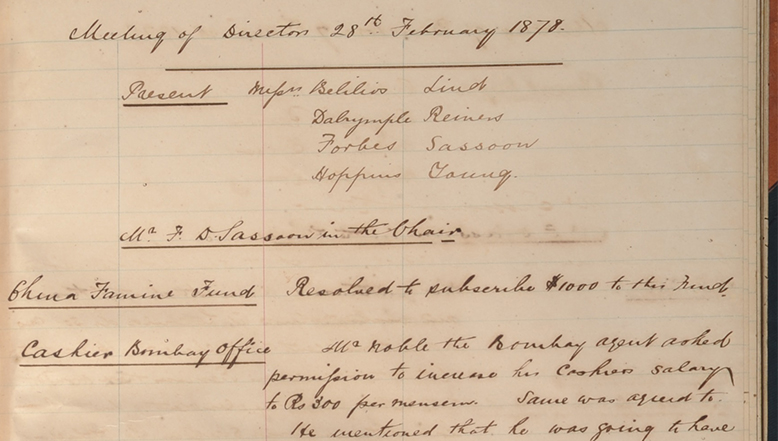 Meeting of Directors 28th February 1878.
Present Messrs Belilios Lind
Dalrymple Reiners
Forbes Sassoon
Hoppius Young.
Mr F. D. Sassoon in the Chair
China Famine Fund Resolved to subscribe $1000 to this Fund.
Cashier Bombay Office Mr Noble the Bombay agent asked
permission to increase his Cashiers salary
to Rs 300 per mensem. Same was agreed to.
He mentioned that he was going to have